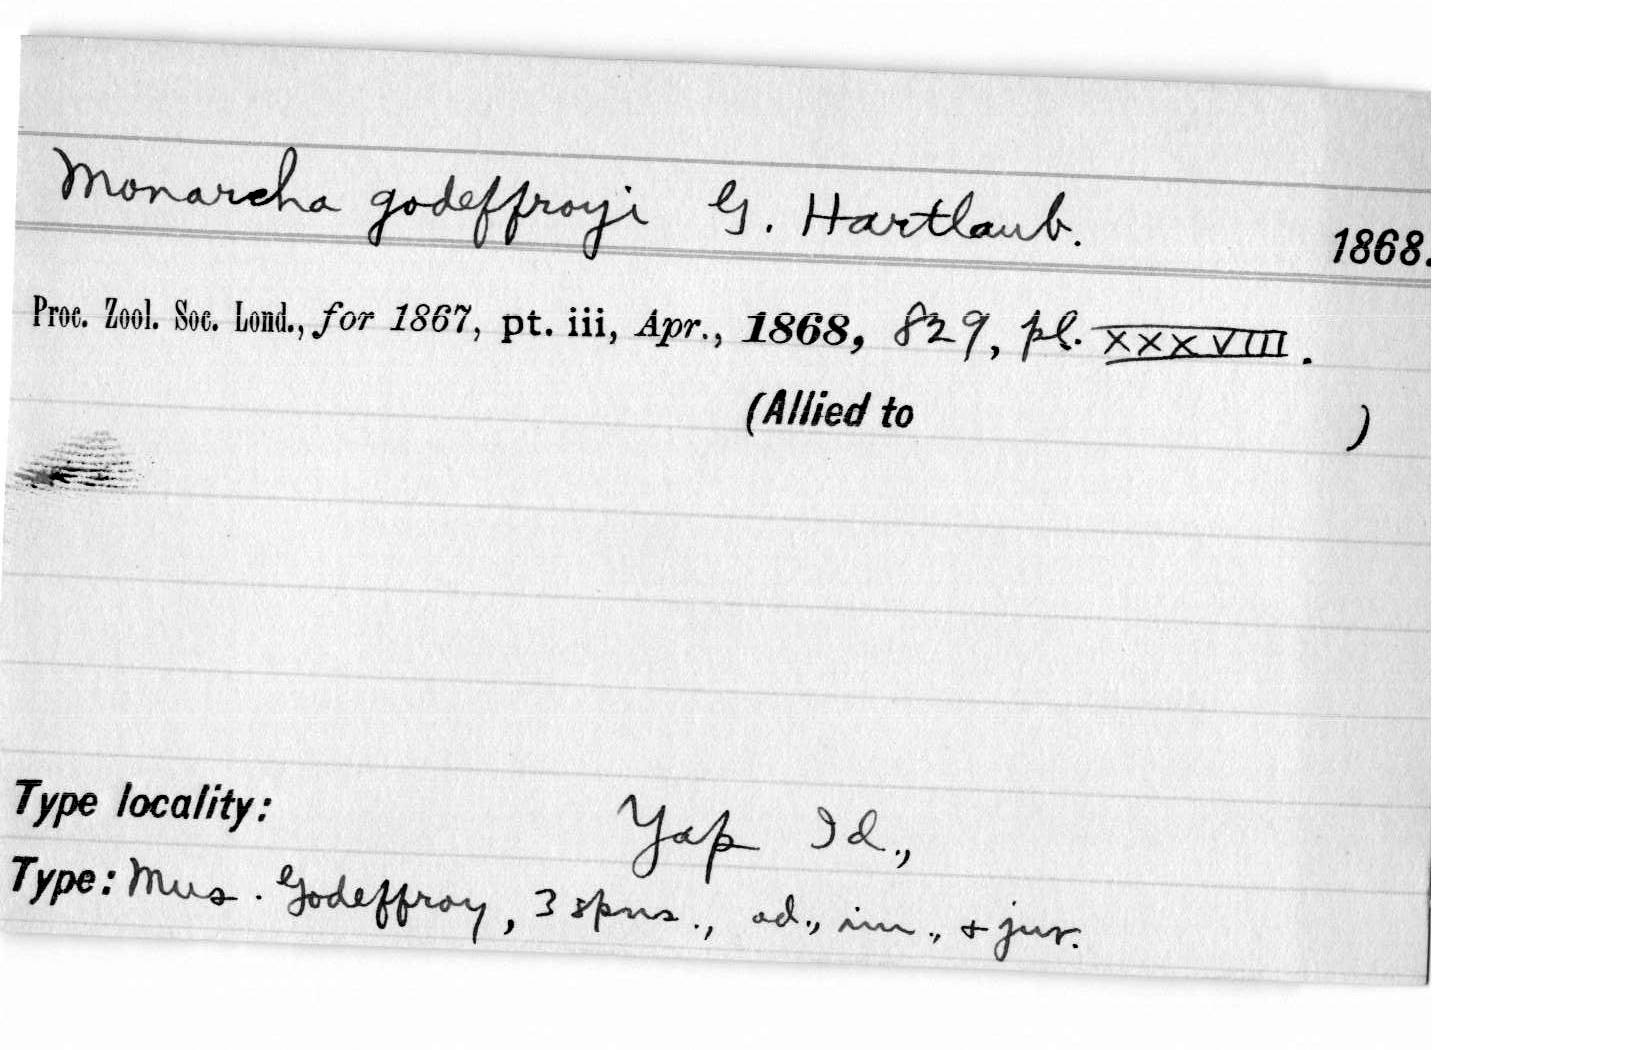 Monarcha godeffroyi G. Hartlaub. 1868.
Proc. Zool. Soc. Lond., for 1867, pt. iii, Apr., 1868, 829, pl. XXXVIII.
(Allied to )
Type locality: Yap Id.,
Type: Mus. Godeffroy, 3 spns., ad., im., & juv.